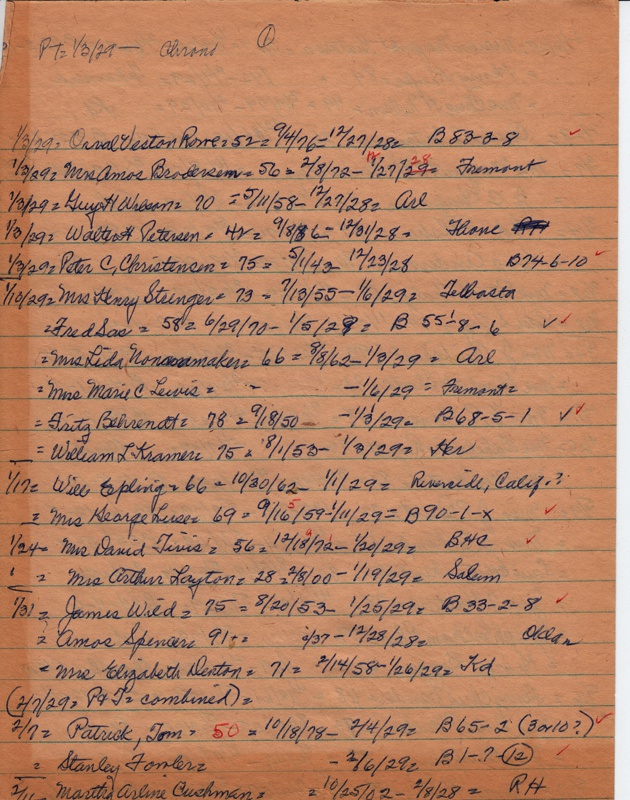 PT = 1/3/29 — Chrono ①
1/3/29 = Orval Veston Rowe = 52 = 9/4/76 = 12/27/28 = B 83-3-8 ✓
1/3/29 = Mrs Amos Brodersen = 56 = 2/8/72 - 12/27/28 = Fremont
1/3/29 = Guy H Wilson = 70 = 5/11/58 - 12/27/28 = Arl
1/3/29 = Walter H Petersen = 42 = 9/8/86 - 12/31/28 = Kone
1/3/29 = Peter C. Christensen = 75 = 5/1/43 - 12/23/28 B74-6-10 ✓
1/10/29 = Mrs Henry Stringer = 73 = 7/13/55 - 1/6/29 =
= Fred Sas = 58 = 6/29/70 - 1/5/29 = B 55-8-6 ✓✓
= Mrs Lida Nonnamaker = 66 = 9/8/62 - 1/3/29 = Arl
= Mrs Marie C Lewis = - - 1/6/29 = Fremont =
= Fritz Behrendt = 78 = 9/18/50 - 1/3/29 = B68-5-1 ✓✓
= William L Kramer = 75 = 8/1/53 - 1/3/29 = Her
1/17 = Will Epling = 66 = 10/30/62 - 1/1/29 = Riverside, Calif.?
= Mrs George Luse = 69 = 9/16/59 - 1/11/29 = B90-1-X ✓
1/24 = Mrs David Tivis = 56 = 12/18/72 - 1/20/29 = BHC ✓
" = Mrs Arthur Layton = 28 = 2/8/00 - 1/19/29 = Salem
1/31 = James Wild = 75 = 8/20/53 - 1/25/29 = B 33-2-8 ✓
= Amos Spencer = 91+ = 2/37 - 12/28/28 =
= Mrs Elizabeth Denton = 71 = 2/14/58 - 1/26/29 = Kd
(2/7/29 = P & T = combined) =
2/7 = Patrick, Tom = 50 = 10/18/78 - 2/4/29 = B65-2 (3 or 10?) ✓
= Stanley Fowler = - 2/6/29 = B1-?-⑫ ✓
2/11 = Martha Arline Cushman = = 10/25/02 - 2/8/28 = RH